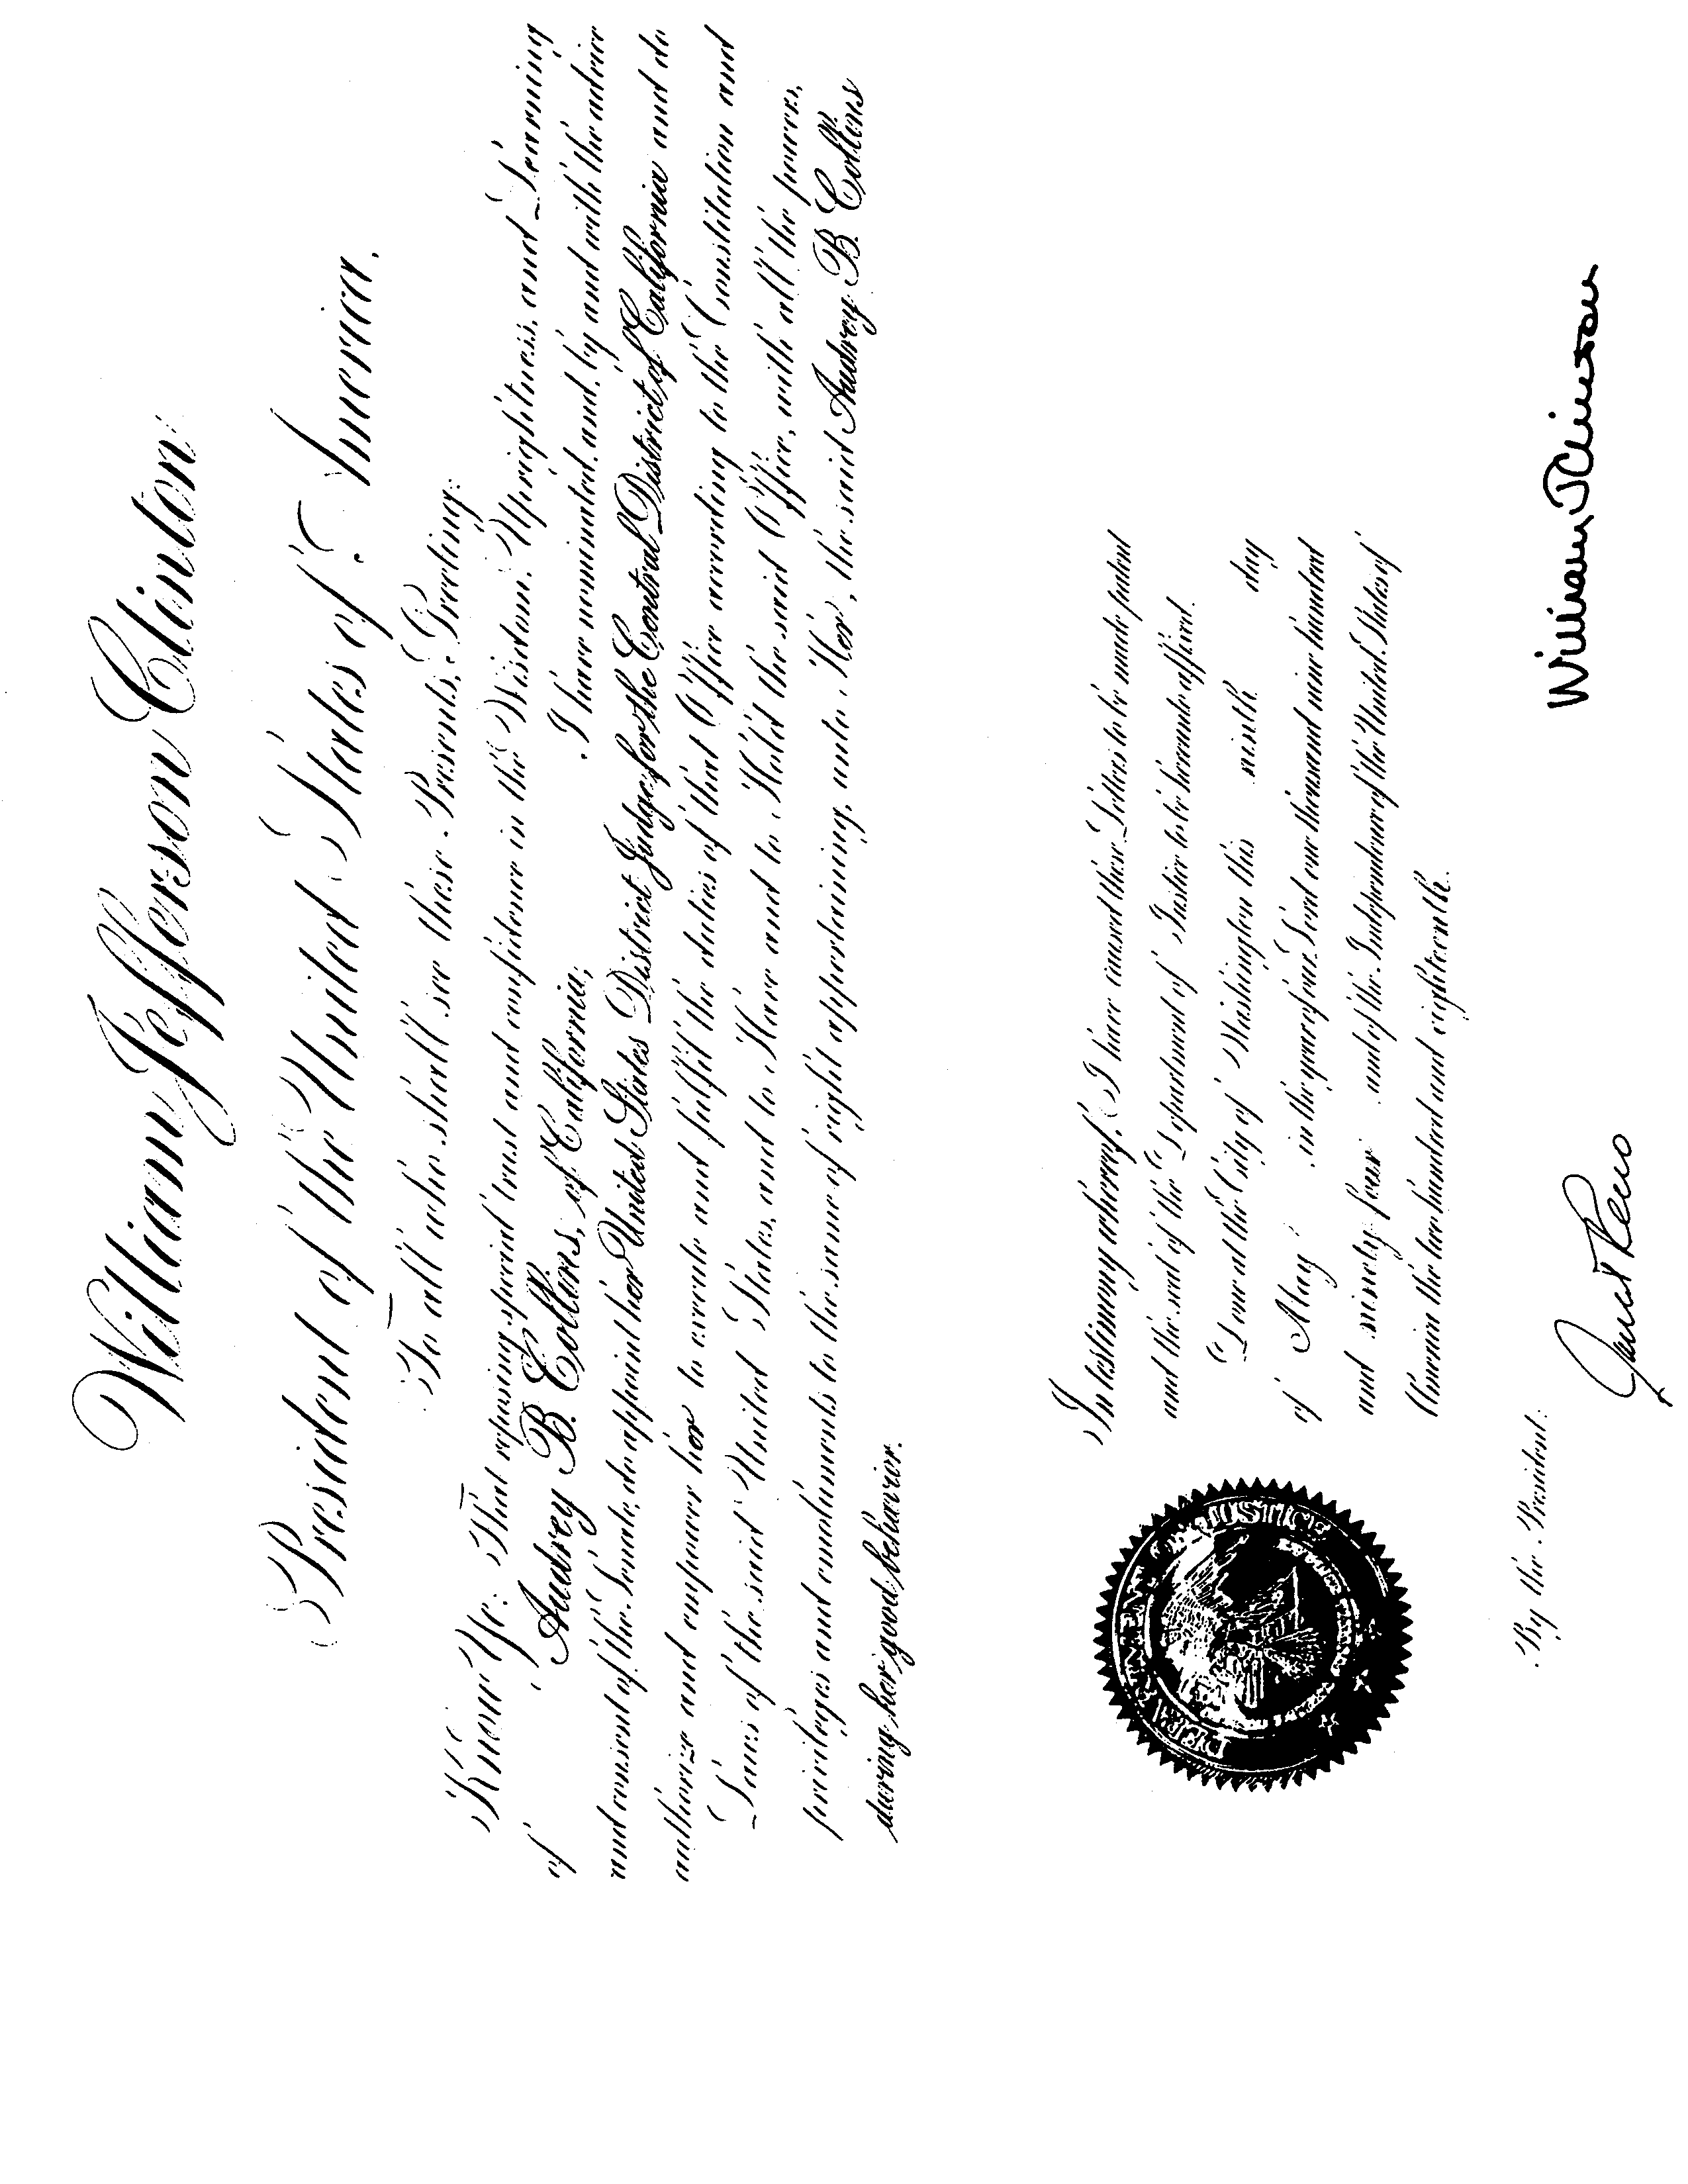 William Jefferson Clinton
President of the United States of America.
To all who shall see these Presents, Greeting:
Know Ye: That reposing special trust and confidence in the Wisdom, Uprightness, and Learning
of Audrey B. Collins, of California, I have nominated, and, by and with the advice
and consent of the Senate, do appoint her United States District Judge for the Central District of California and do
authorize and empower her to execute and fulfil the duties of that Office according to the Constitution and
Laws of the said United States, and to Have and to Hold the said Office, with all the powers,
privileges and emoluments to the same of right appertaining, unto Her, the said Audrey B. Collins
during her good behavior.
In testimony whereof, I have caused these Letters to be made patent
and the seal of the Department of Justice to be hereunto affixed.
Done at the City of Washington this ninth day
of May in the year of our Lord one thousand nine hundred
and ninety-four and of the Independence of the United States of
America the two hundred and eighteenth.
DEPARTMENT OF JUSTICE
William J Clinton
By the President:
Janet Reno